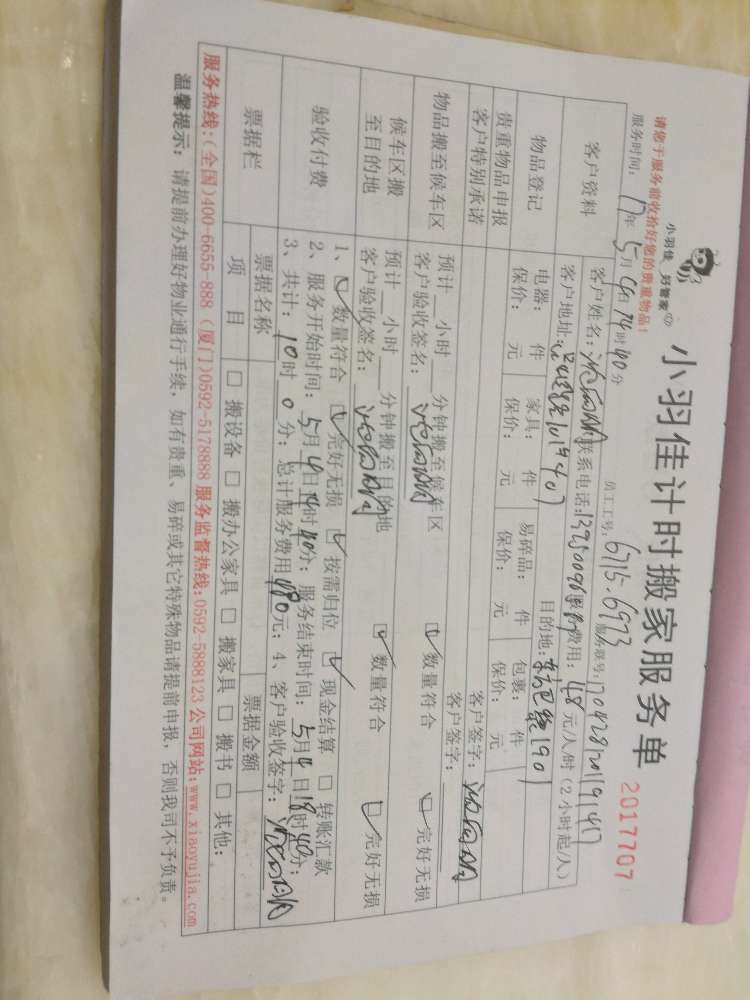 小羽佳 好管家
小羽佳计时搬家服务单
2017707
请您于服务前收拾好您的贵重物品!
员工工号: 6715.6973
服务时间: 17年 5月 4日 14时 40分
服务联号:
客户资料
客户姓名: 联系电话: 服务费用: 48 元/人/时(2小时起/人)
客户地址: 目的地:
物品登记
电器: 件 家具: 件 易碎品: 件 包裹: 件
保价: 元 保价: 元 保价: 元 保价: 元
贵重物品申报 客户签字:
客户特别承诺 客户签字:
物品搬至候车区
预计 小时 分钟搬至候车区
客户验收签名: 数量符合 完好无损
候车区搬至目的地
预计 小时 分钟搬至目的地
客户验收签名: 数量符合 完好无损
验收付费
1、数量符合 完好无损 按需归位 现金结算 转账汇款
2、服务开始时间: 5月4日14时40分; 服务结束时间: 5月4日18时40分;
3、共计: 10时 0分; 总计服务费用480元; 4、客户验收签字:
票据栏 票据名称 票据金额
项目 搬设备 搬办公家具 搬家具 搬书 其他:
服务热线:(全国)400-6655-888 (厦门)0592-5178888 服务监督热线:0592-5888123 公司网站:www.xiaoyujia.com
温馨提示: 请提前办理好物业通行手续, 如有贵重、易碎或其它特殊物品请提前申报, 否则我司不予负责。